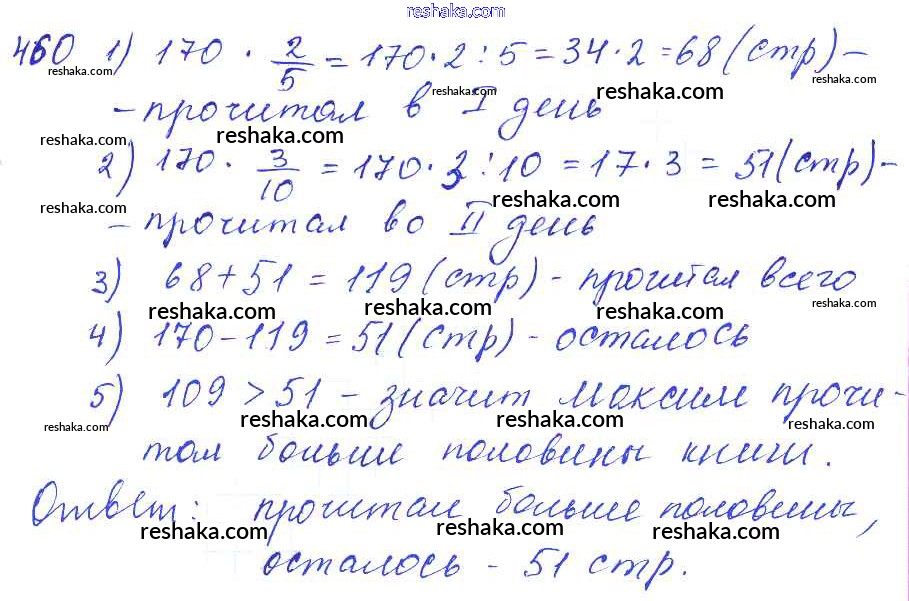 reshaka.com
460 1) 170 · 2/5 = 170 · 2 : 5 = 34 · 2 = 68 (стр) –
reshaka.com reshaka.com reshaka.com reshaka.com
– прочитал в I день
reshaka.com reshaka.com reshaka.com reshaka.com
2) 170 · 3/10 = 170 · 3 : 10 = 17 · 3 = 51 (стр) –
reshaka.com reshaka.com reshaka.com
– прочитал во II день
3) 68 + 51 = 119 (стр) - прочитал всего
reshaka.com reshaka.com reshaka.com reshaka.com
4) 170 – 119 = 51 (стр) - осталось
5) 109 > 51 – значит Максим прочи-
reshaka.com reshaka.com reshaka.com reshaka.com
тал больше половины книги.
Ответ: прочитал больше половины,
reshaka.com reshaka.com reshaka.com
осталось - 51 стр.